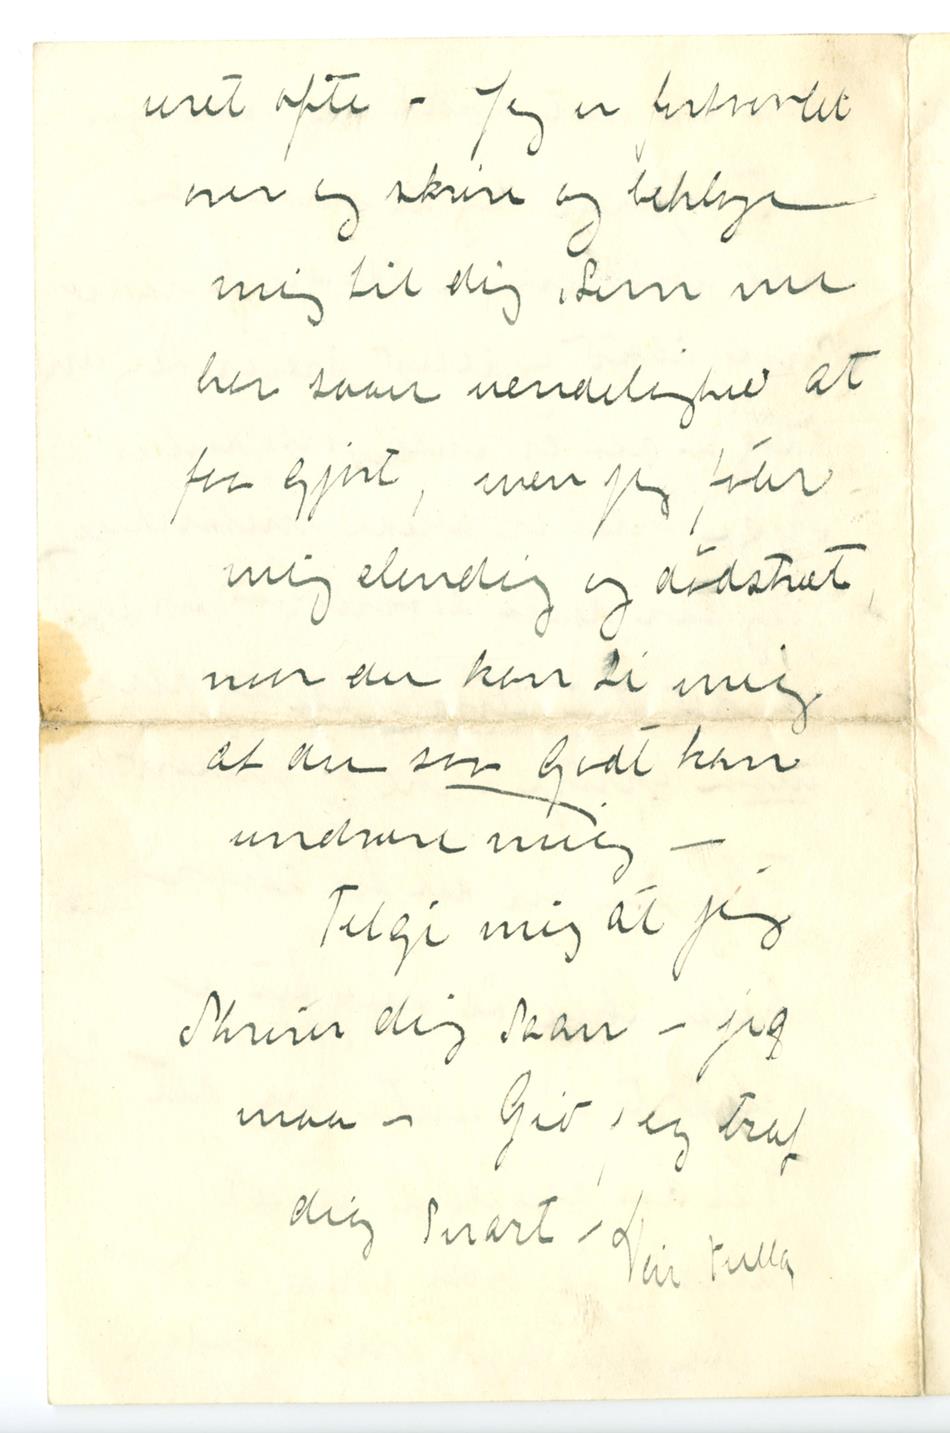 uret ofte - Jeg er fortvivlet
over og skrive og beklage
mig til dig, som nu
har saan uendelighed at
faa gjort, men jeg føler
mig elendig og dødstræt,
naar du kan si mig
at du saa godt kan
undvære mig -
Tilgi mig at jeg
skriver dig saan - jeg
maa - Gid jeg traf
dig snart - Din Tulla